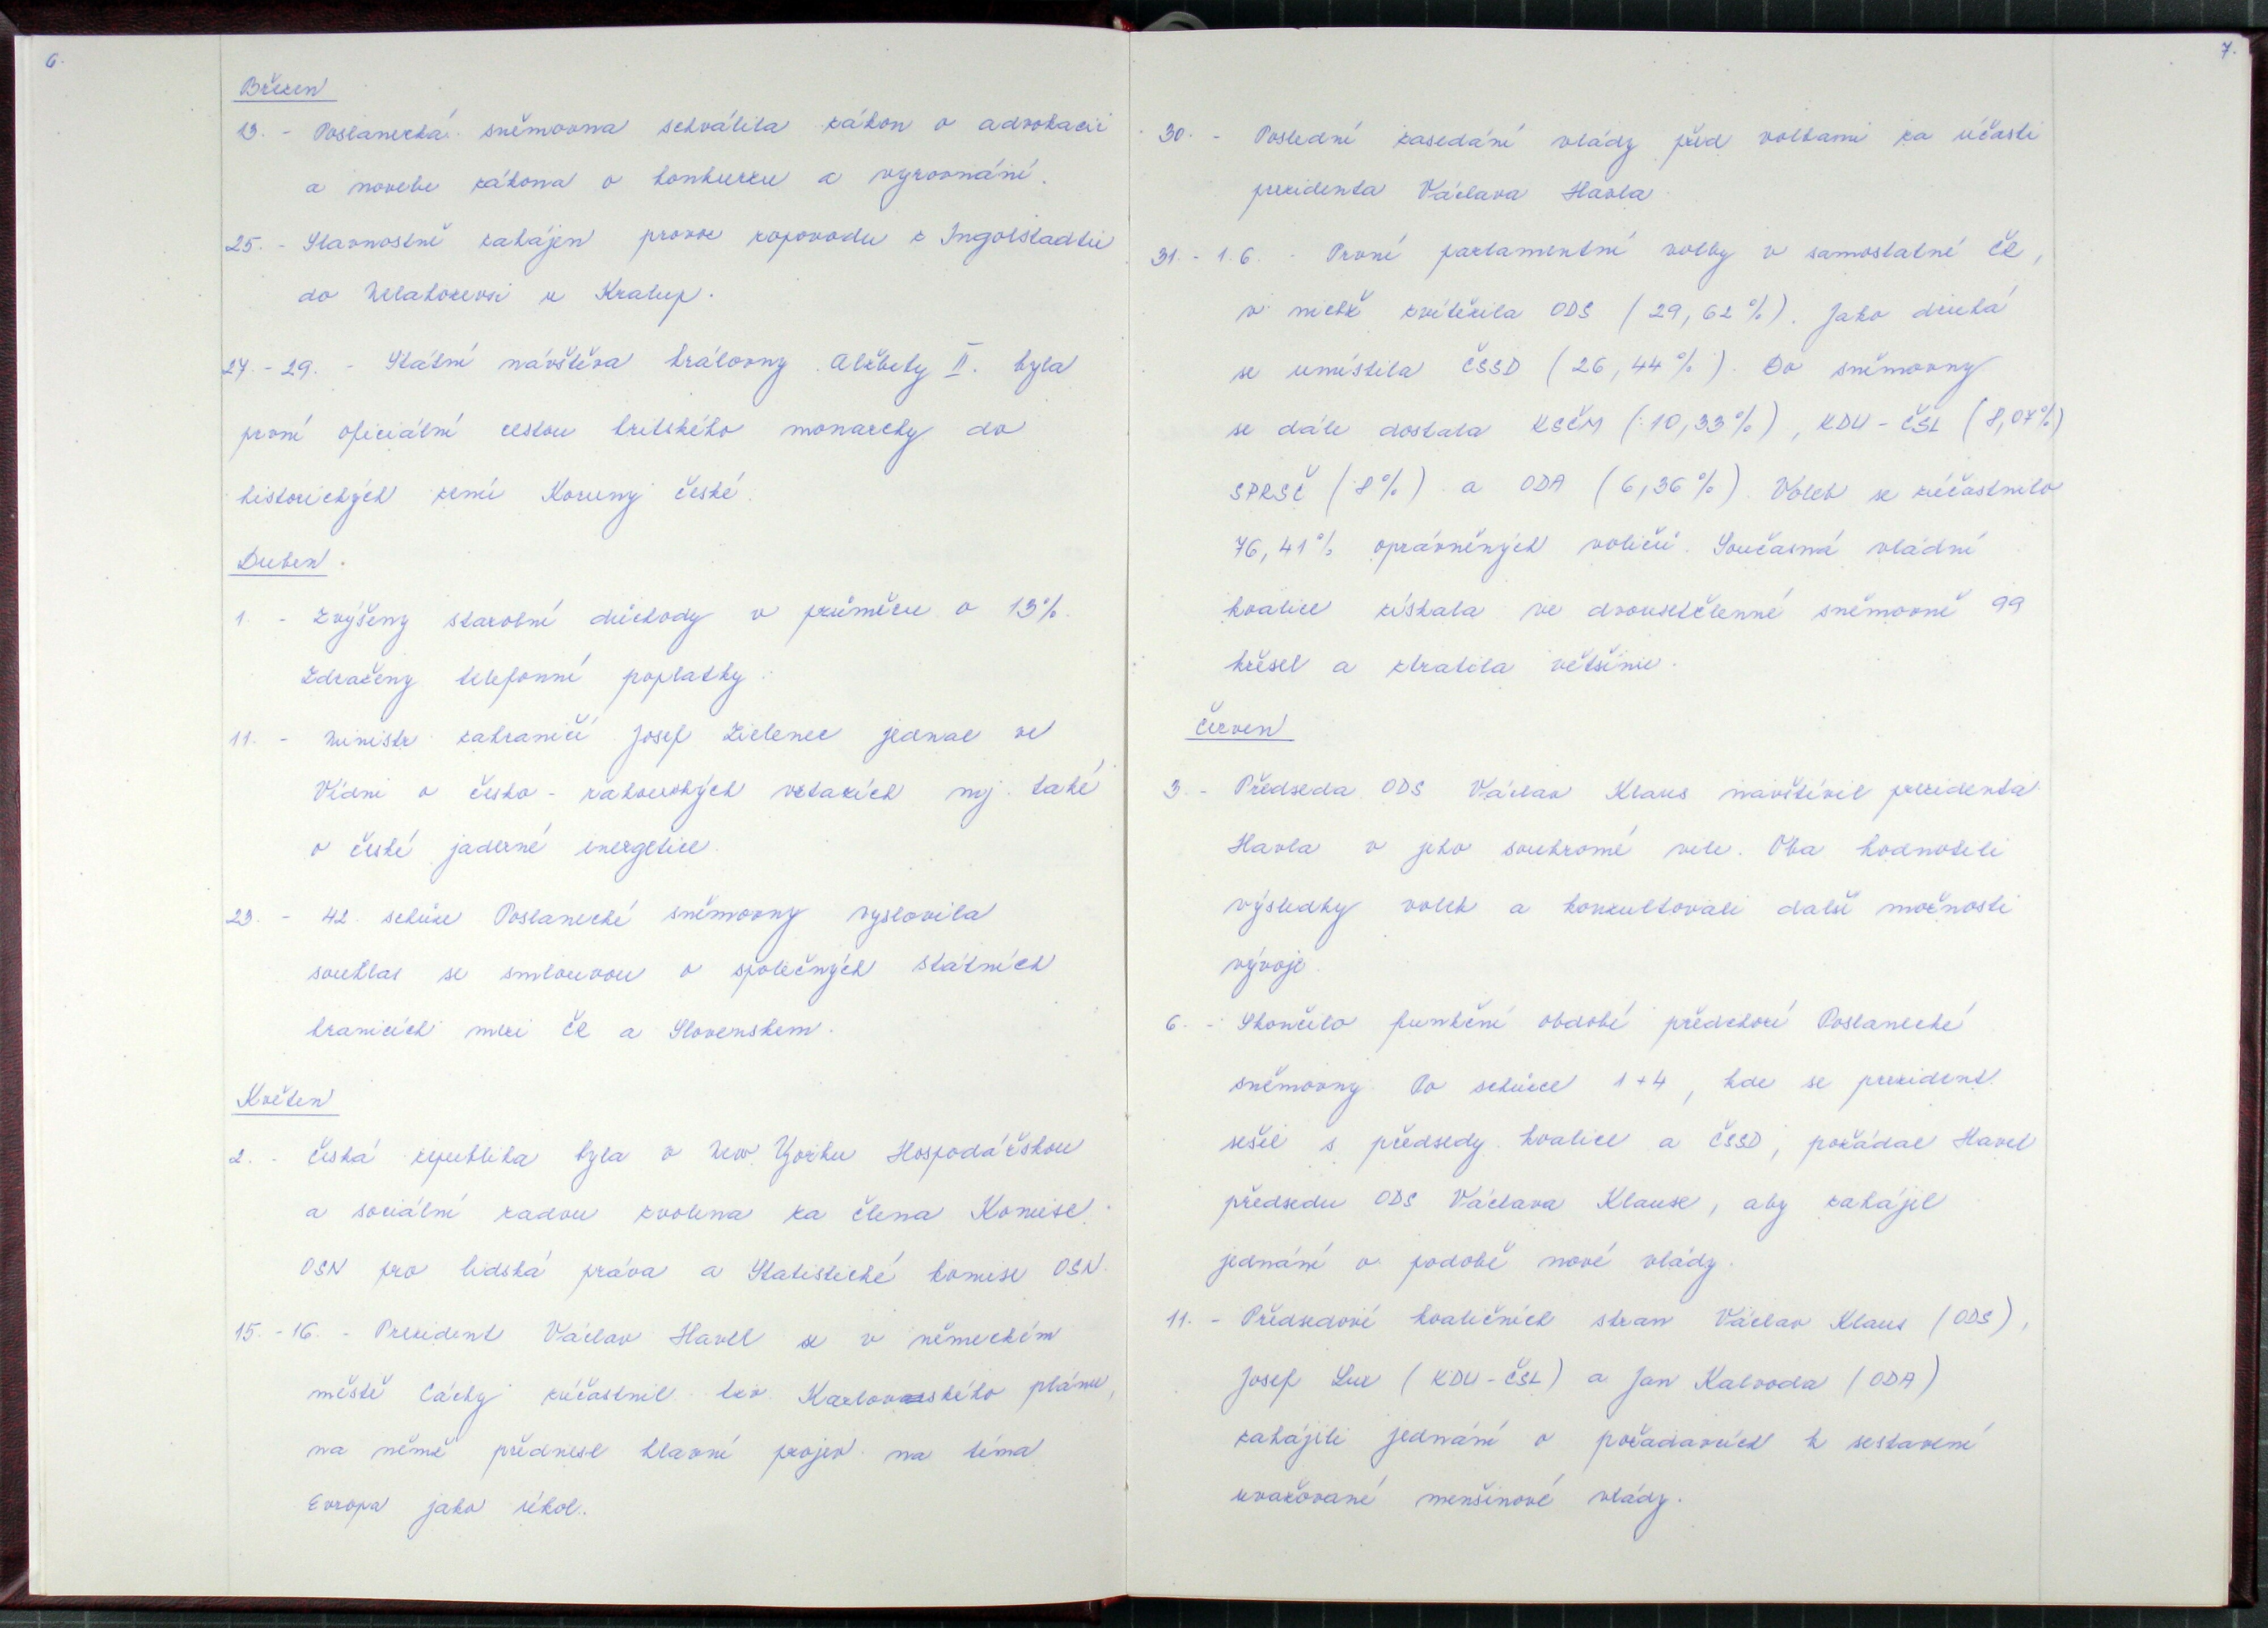 6.
Březen
13. - Poslanecká sněmovna schválila zákon o advokacii
a novelu zákona o konkurzu a vyrovnání.
25. - Slavnostně zahájen provoz ropovodu z Ingolstadtu
do Nelahozevsi u Kralup.
27. - 29. - Státní návštěva královny Alžběty II. byla
první oficiální cestou britského monarchy do
historických zemí Koruny české.
Duben.
1. - Zvýšeny starobní důchody v průměru o 13%.
Zdraženy telefonní poplatky.
11. - Ministr zahraničí Josef Zieleniec jednal ve
Vídni o česko - rakouských vztazích mj. také
o české jaderné energetice.
23. - 42. schůze Poslanecké sněmovny vyslovila
souhlas se smlouvou o společných státních
hranicích mezi ČR a Slovenskem.
Květen
2. - Česká republika byla v New Yorku Hospodářskou
a sociální radou zvolena za člena Komise
OSN pro lidská práva a Statistické komise OSN.
15. - 16. - Prezident Václav Havel se v německém
městě Cáchy zúčastnil tzv. Karlovského plánu,
na němž přednesl hlavní projev na téma
Evropa jako úkol.
7.
30. - Poslední zasedání vlády před volbami za účasti
prezidenta Václava Havla.
31. - 1. 6. - První parlamentní volby v samostatné ČR,
v nichž zvítězila ODS (29,62%). Jako druhá
se umístila ČSSD (26,44%). Do sněmovny
se dále dostala KSČM (10,33%), KDU - ČSL (8,07%)
SPRSČ (8%) a ODA (6,36%). Voleb se zúčastnilo
76,41% oprávněných voličů. Současná vládní
koalice získala ve dvousetčlenné sněmovně 99
křesel a ztratila většinu.
Červen
3. - Předseda ODS Václav Klaus navštívil prezidenta
Havla v jeho soukromé vile. Oba hodnotili
výsledky voleb a konzultovali další možnosti
vývoje.
6. - Skončilo funkční období předchozí Poslanecké
sněmovny. Po schůzce 1 + 4, kde se prezident
sešel s předsedy koalice a ČSSD, požádal Havel
předsedu ODS Václava Klause, aby zahájil
jednání o podobě nové vlády.
11. - Předsedové koaličních stran Václav Klaus (ODS),
Josef Lux (KDU - ČSL) a Jan Kalvoda (ODA)
zahájili jednání o požadavcích k sestavení
uvažované menšinové vlády.